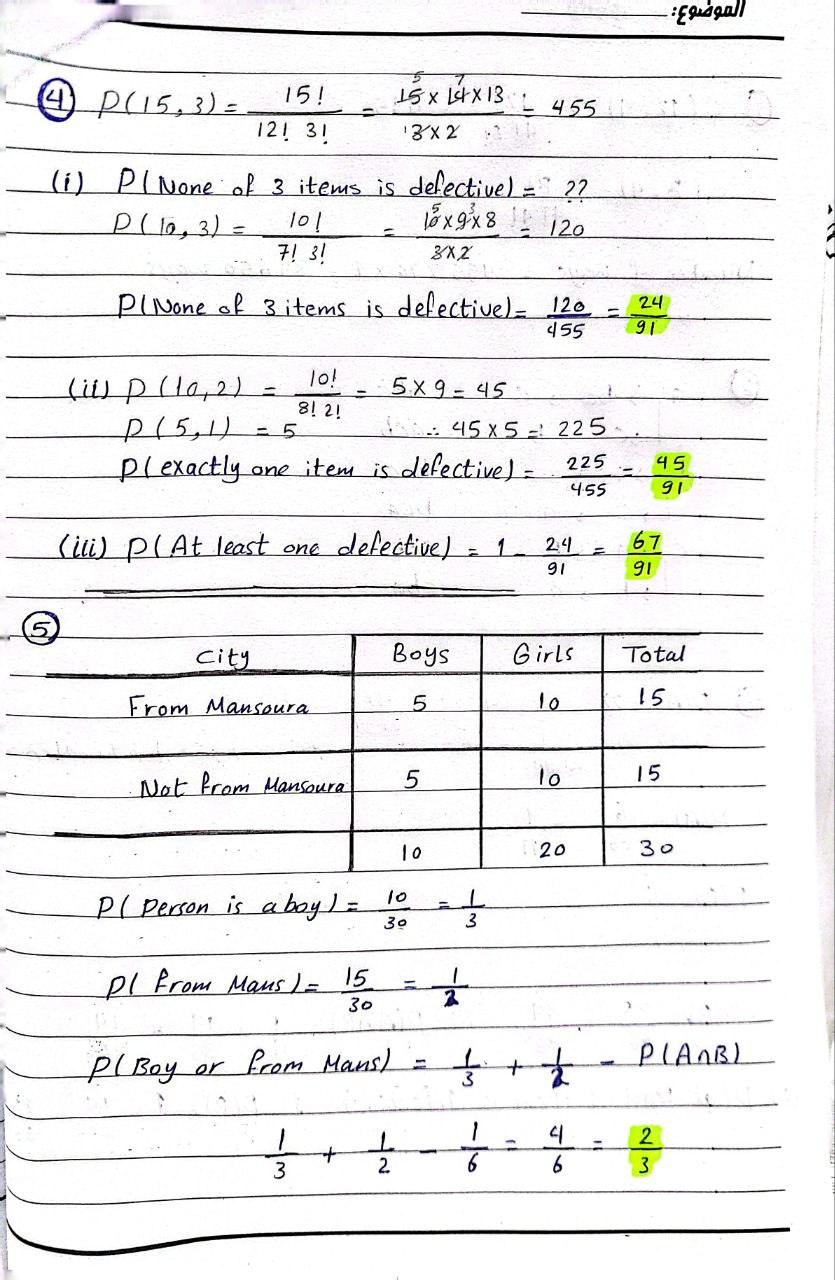 الموضوع:
④ P(15,3) = 15! / 12! 3! = 15 x 14 x 13 / 3 x 2 = 455
5 7
(i) P(None of 3 items is defective) = ??
P(10,3) = 10! / 7! 3! = 10 x 9 x 8 / 3 x 2 = 120
5 3
P(None of 3 items is defective) = 120 / 455 = 24 / 91
(ii) P(10,2) = 10! / 8! 2! = 5 x 9 = 45
P(5,1) = 5 ∴ 45 x 5 = 225
P(exactly one item is defective) = 225 / 455 = 45 / 91
(iii) P(At least one defective) = 1 - 24 / 91 = 67 / 91
⑤
City Boys Girls Total
From Mansoura 5 10 15
Not from Mansoura 5 10 15
10 20 30
P(Person is a boy) = 10 / 30 = 1 / 3
P(from Mans) = 15 / 30 = 1 / 2
P(Boy or from Mans) = 1 / 3 + 1 / 2 - P(A∩B)
1 / 3 + 1 / 2 - 1 / 6 = 4 / 6 = 2 / 3